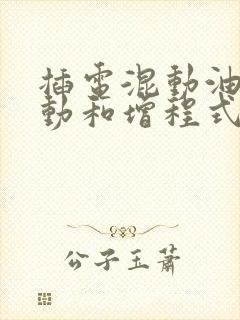 插電混動油
動和增程式
公子玉蕭